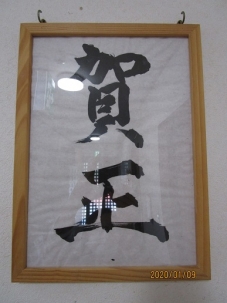 賀
正
2020/01/09